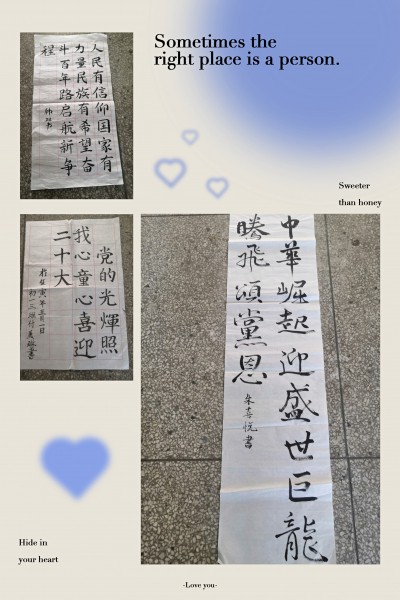 Sometimes the
right place is a person.
人民有信仰国家有
力量民族有希望奋
斗百年路启航新争
程
Sweeter
than honey
党的光輝照
我心童心喜迎
二十大
中華崛起迎盛世巨龍
騰飛頌黨恩
朱喜悦書
Hide in
your heart
-Love you-